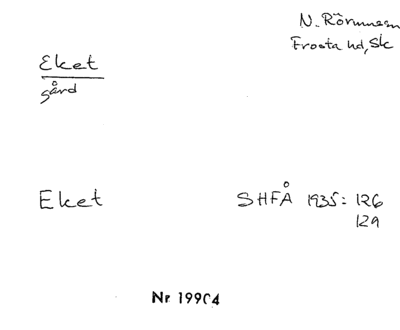 N. Rörum sn
Frosta hd, Sk
Eket
gård
Eket SHFÅ 1935: 126
129
Nr 19904